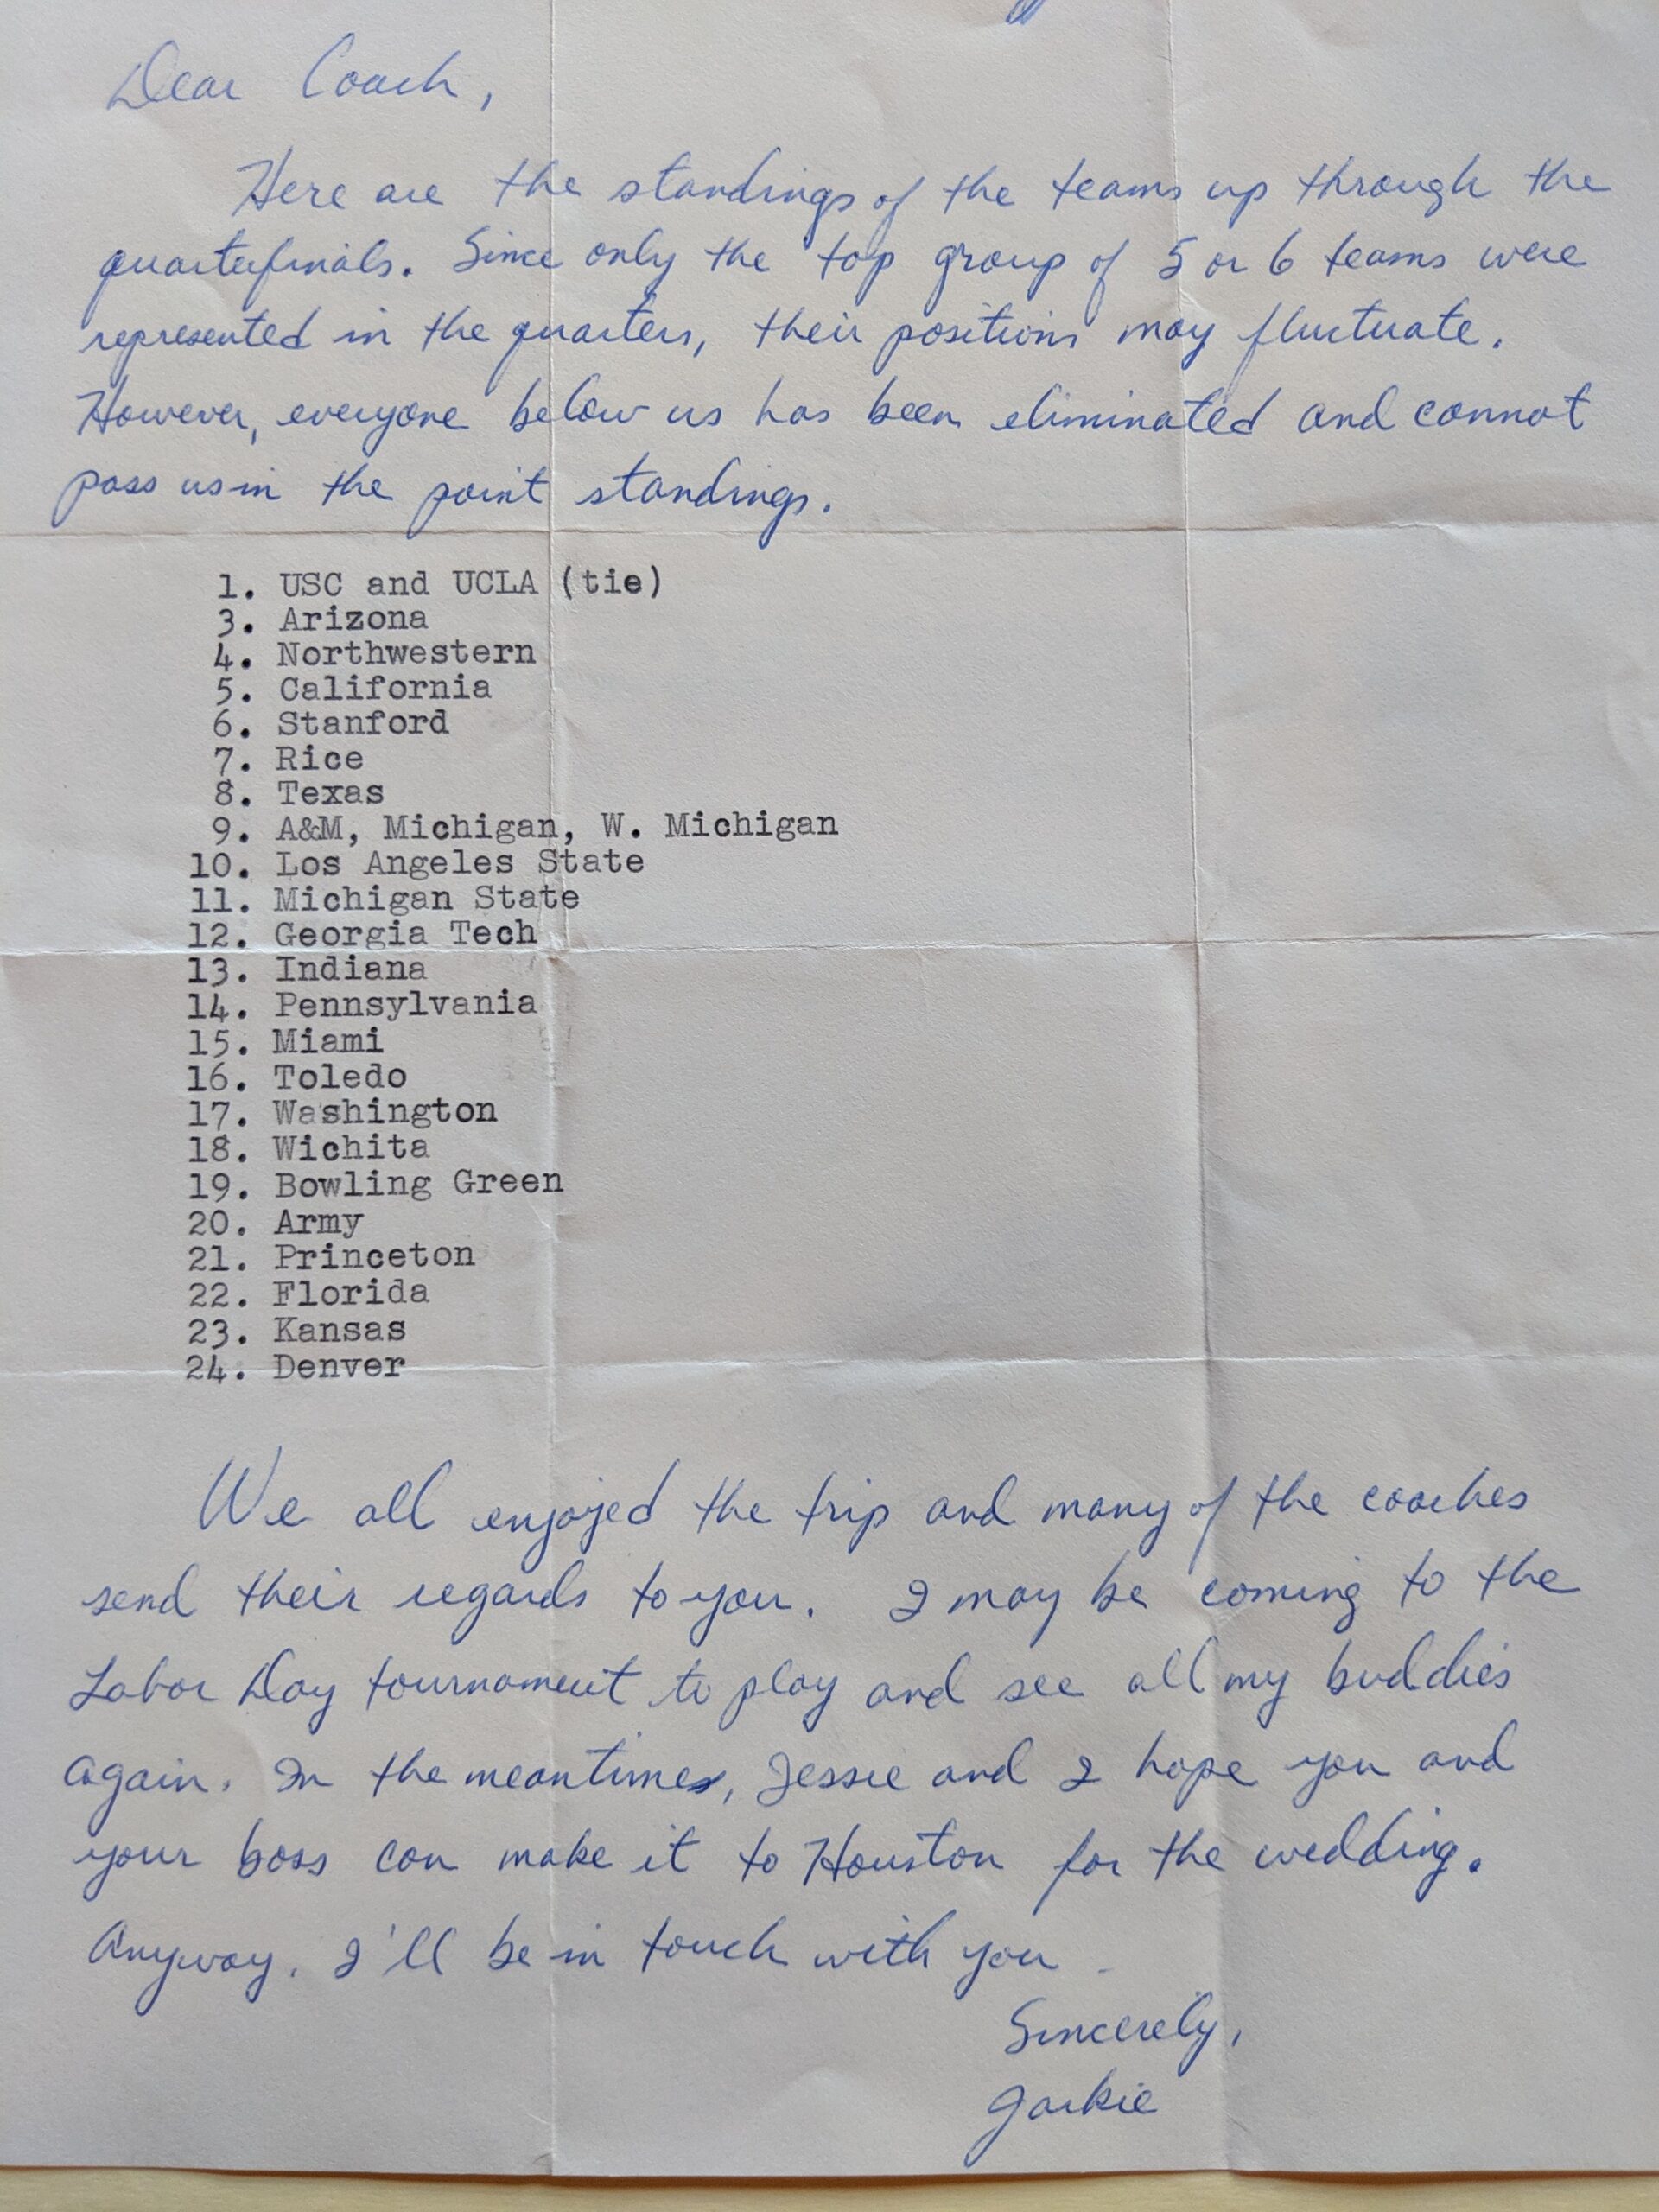 Dear Coach,
Here are the standings of the teams up through the
quarterfinals. Since only the top group of 5 or 6 teams were
represented in the quarters, their positions may fluctuate.
However, everyone below us has been eliminated and cannot
pass us in the point standings.
1. USC and UCLA (tie)
3. Arizona
4. Northwestern
5. California
6. Stanford
7. Rice
8. Texas
9. A&M, Michigan, W. Michigan
10. Los Angeles State
11. Michigan State
12. Georgia Tech
13. Indiana
14. Pennsylvania
15. Miami
16. Toledo
17. Washington
18. Wichita
19. Bowling Green
20. Army
21. Princeton
22. Florida
23. Kansas
24. Denver
We all enjoyed the trip and many of the coaches
send their regards to you. I may be coming to the
Labor Day tournament to play and see all my buddies
again. In the meantime, Jessie and I hope you and
your boss can make it to Houston for the wedding.
Anyway, I'll be in touch with you.
Sincerely,
Jackie